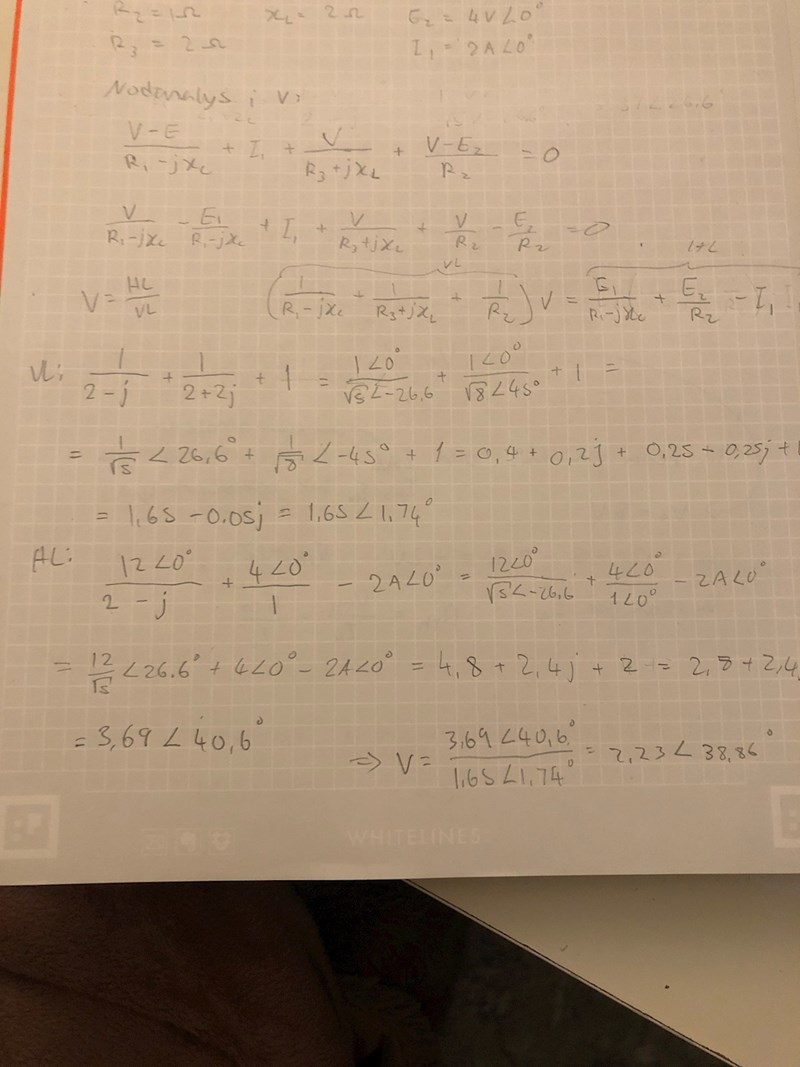 R₂ = 1Ω xL = 2Ω E₂ = 4V∠0°
R₃ = 2Ω I₁ = 2A∠0°
Nodanalys i V:
(V-E)/(R₁-jxc) + I₁ + V/(R₃+jxL) + (V-E₂)/R₂ = 0
V/(R₁-jxc) - E₁/(R₁-jxc) + I₁ + V/(R₃+jxL) + V/R₂ - E₂/R₂ = 0
VL HL
V = HL/VL (1/(R₁-jxc) + 1/(R₃+jxL) + 1/R₂) V = E₁/(R₁-jxc) + E₂/R₂ - I₁
VL: 1/(2-j) + 1/(2+2j) + 1 = 1∠0°/(√5∠-26,6) + 1∠0°/(√8∠45°) + 1 =
= 1/√5 ∠26,6° + 1/√8 ∠-45° + 1 = 0,4 + 0,2j + 0,25 - 0,25j + 1
= 1,65 - 0.05j = 1,65∠1,74°
HL: 12∠0°/(2-j) + 4∠0°/1 - 2A∠0° = 12∠0°/(√5∠-26,6) + 4∠0°/1∠0° - 2A∠0°
= 12/√5 ∠26.6° + 4∠0° - 2A∠0° = 4,8 + 2,4j + 2 = 2,8 + 2,4
= 3,69∠40,6°
⇒ V = 3,69∠40,6°/1,65∠1,74° = 2,23∠38,86°
WHITELINES